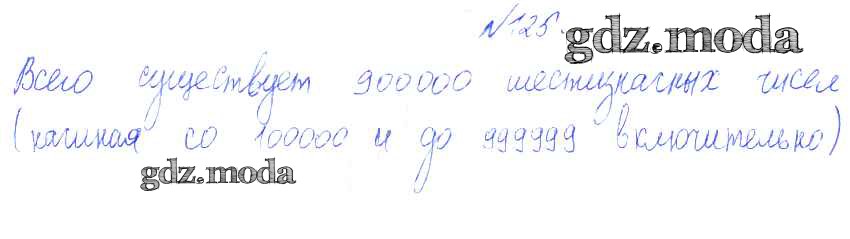 №125.
gdz.moda
Всего существует 900000 шестизначных чисел
(начиная со 100000 и до 999999 включительно)
gdz.moda